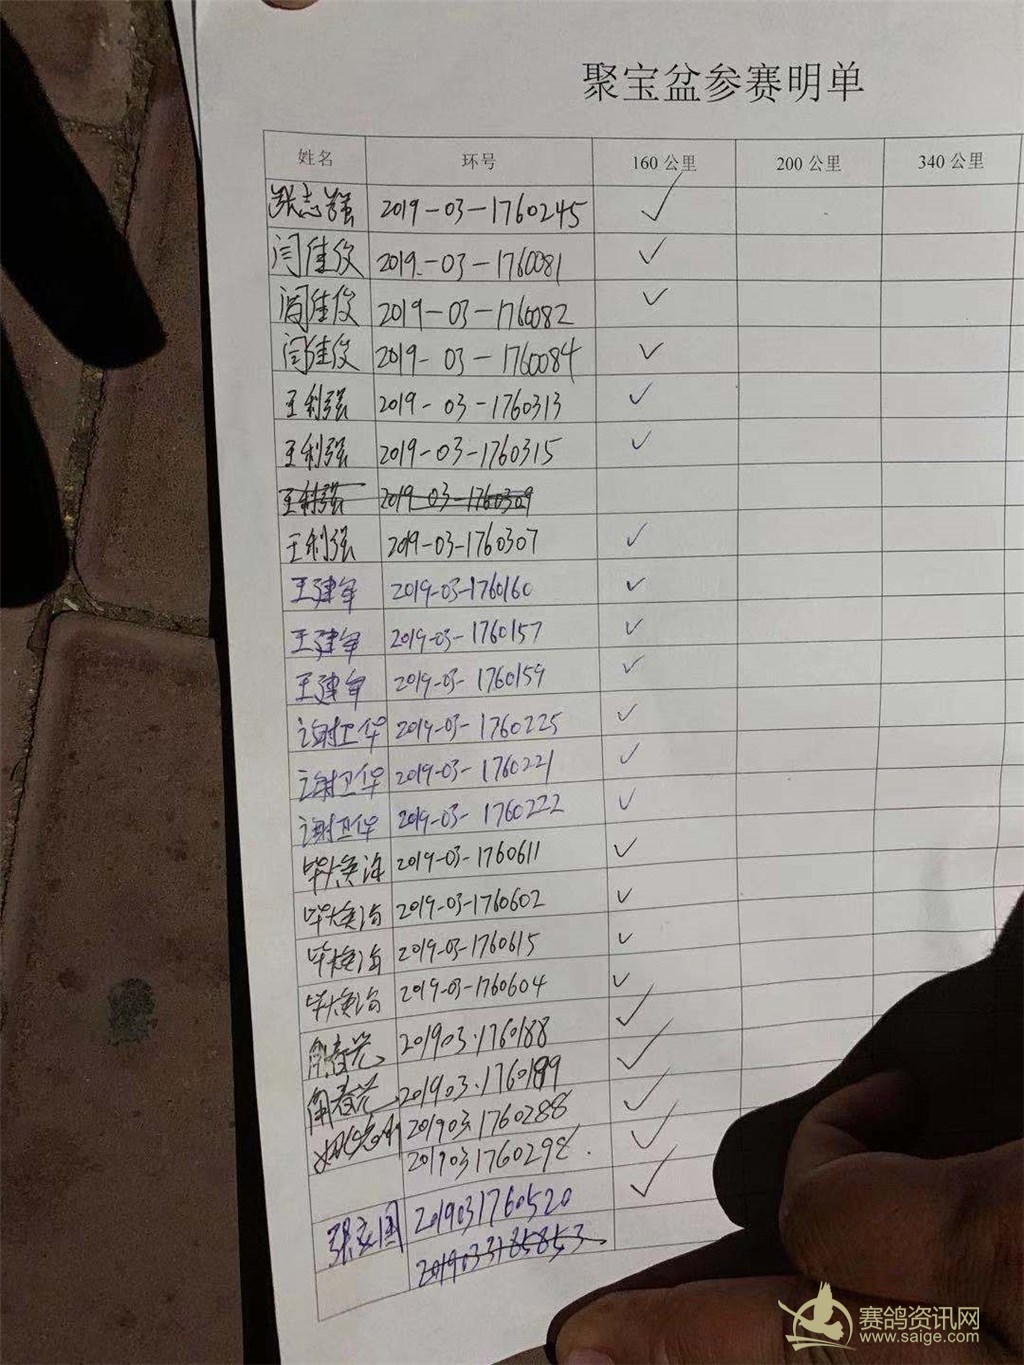 聚宝盆参赛明单
姓名 环号 160公里 200公里 340公里
张志强 2019-03-1760245 ✓
闫佳俊 2019-03-1760081 ✓
闫佳俊 2019-03-1760082 ✓
闫佳俊 2019-03-1760084 ✓
王利强 2019-03-1760313 ✓
王利强 2019-03-1760315 ✓
王利强 2019-03-1760309
王利强 2019-03-1760307 ✓
王建军 2019-03-1760160 ✓
王建军 2019-03-1760157 ✓
王建军 2019-03-1760159 ✓
谢卫华 2019-03-1760225 ✓
谢卫华 2019-03-1760221 ✓
谢卫华 2019-03-1760222 ✓
2019-03-1760611 ✓
2019-03-1760602 ✓
2019-03-1760615 ✓
2019-03-1760604 ✓
201903·1760188 ✓
201903·1760189 ✓
201903·1760288 ✓
2019031760298 ✓
2019031760520 ✓
2019033185853
赛鸽资讯网
www.saige.com